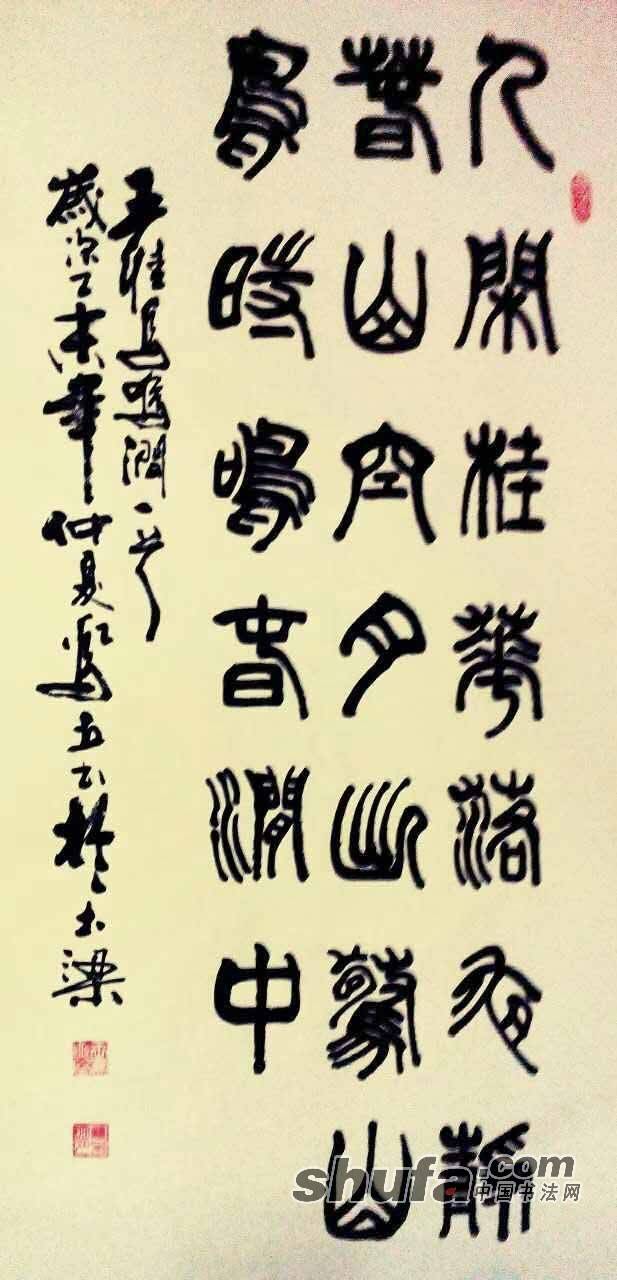 人閑桂華落夜靜
春山空月出驚山
鳥時鳴春澗中
王維鳥鳴澗一首
歲次乙未年仲夏書於大梁
shufa.com
中国书法网